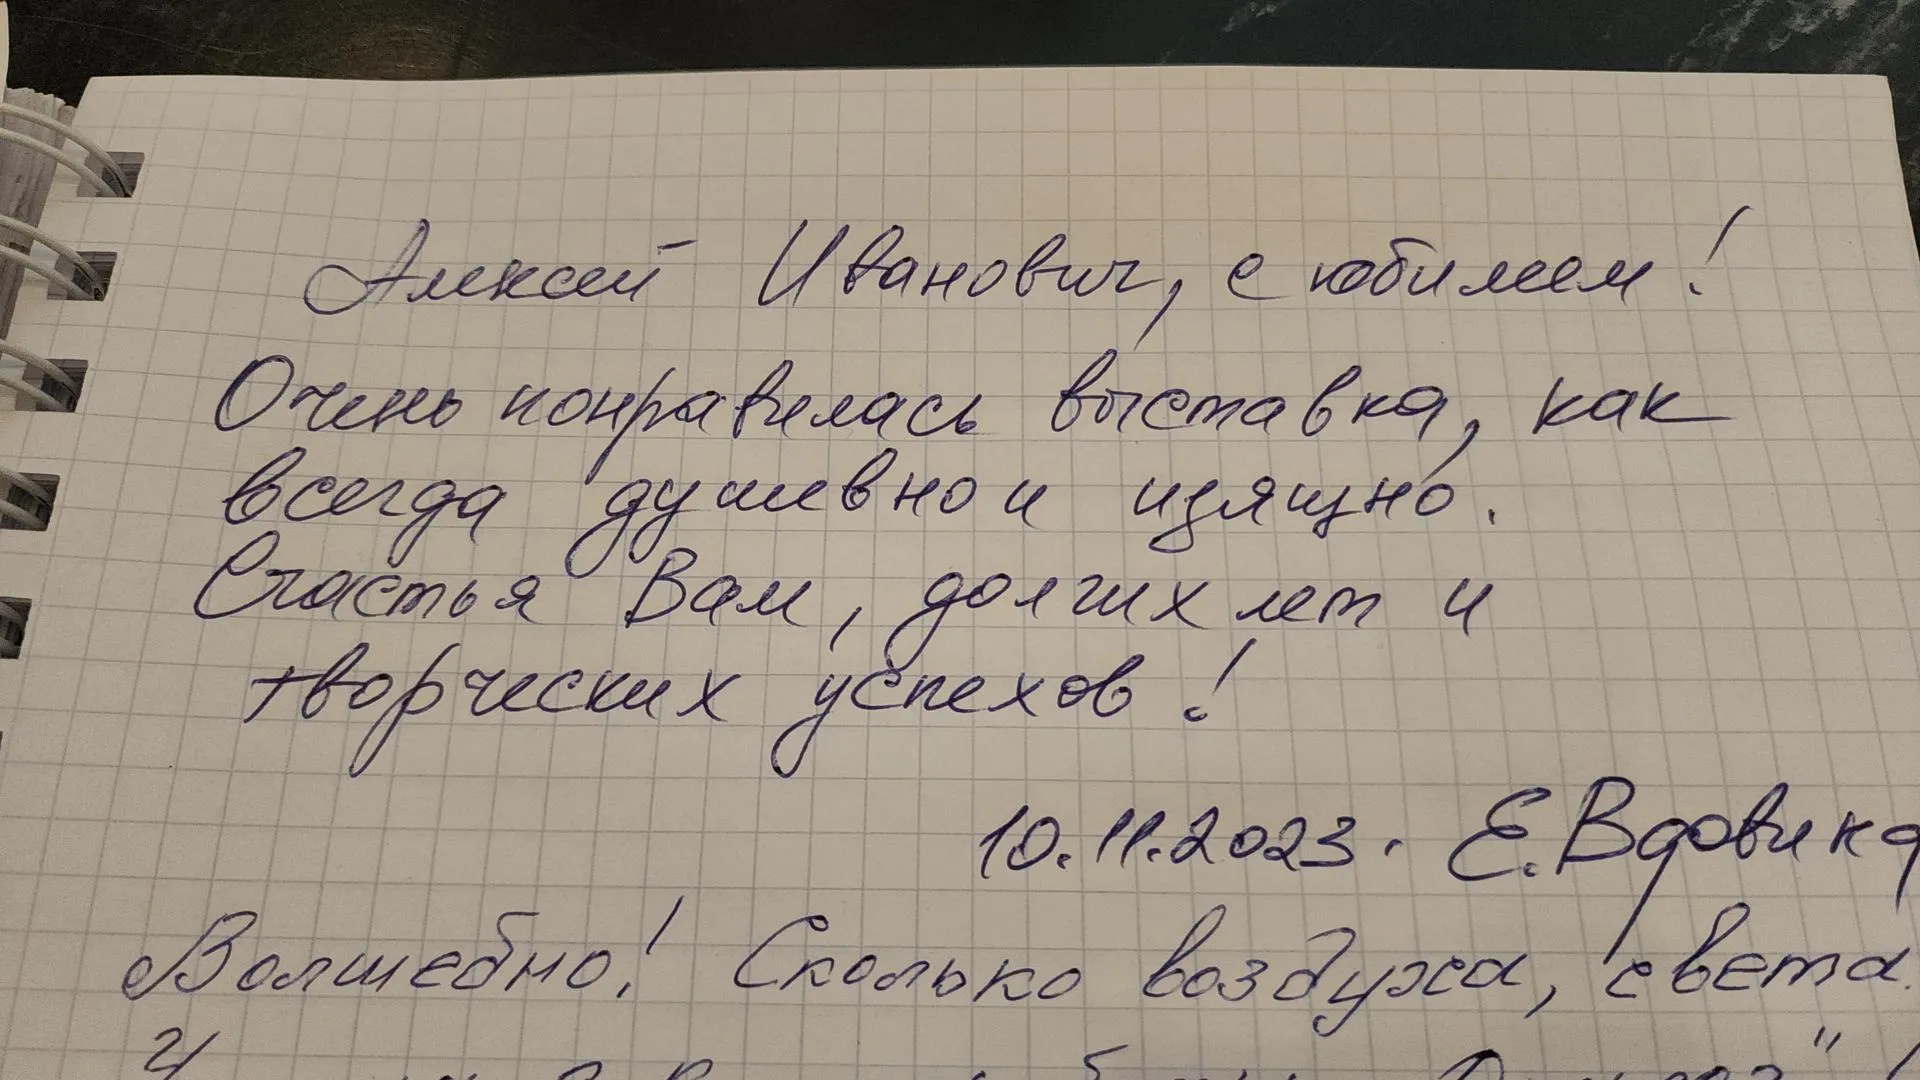 Алексей Иванович, с юбилеем!
Очень понравилась выставка, как
всегда душевно и изящно.
Счастья Вам, долгих лет и
творческих успехов!
10.11.2023. Е. Вдовина
Волшебно! Сколько воздуха, света
и